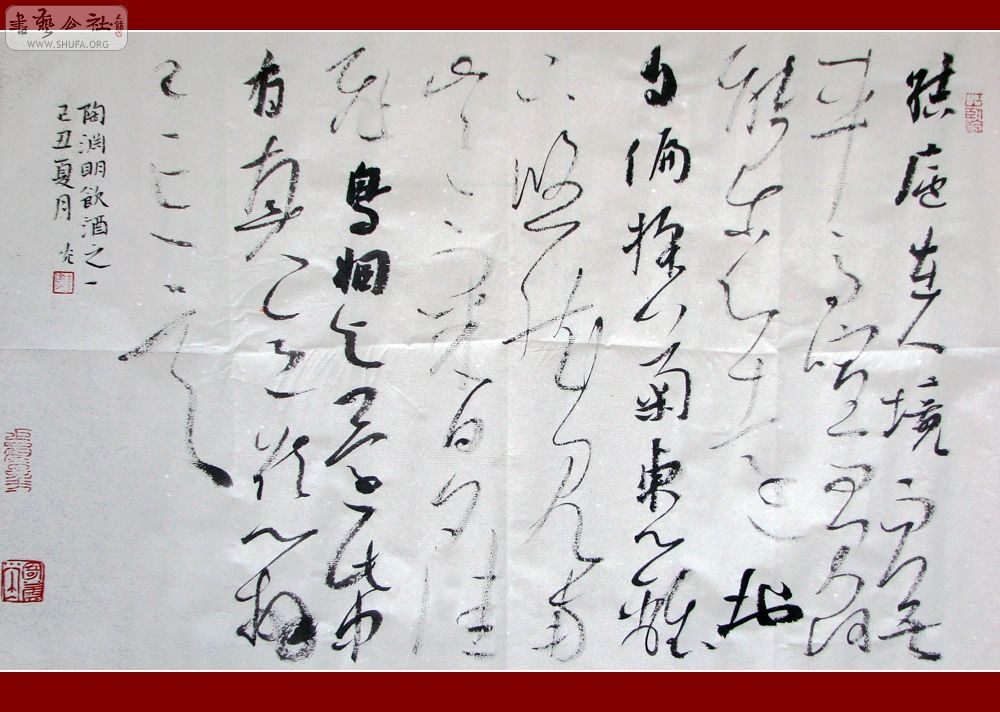 書藝公社
WWW.SHUFA.ORG
結廬在人境而無
車馬喧問君何
能爾心遠地
自偏採菊東籬
下悠然見南
山山氣日夕佳
飛鳥相與還此中
有真意欲辨
已忘言
陶淵明飲酒之一
己丑夏月